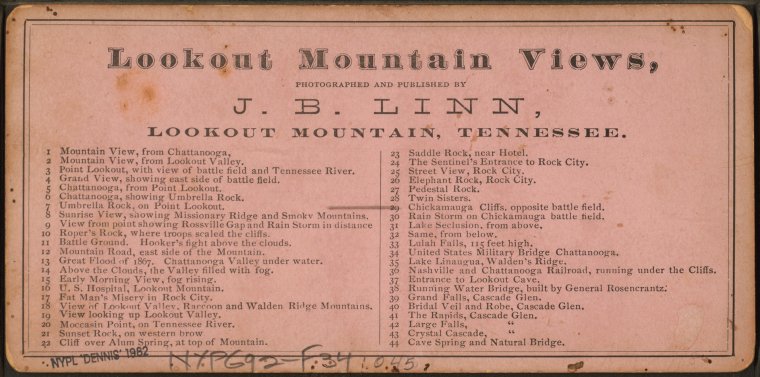 Lookout Mountain Views,
PHOTOGRAPHED AND PUBLISHED BY
J. B. LINN,
LOOKOUT MOUNTAIN, TENNESSEE.
1 Mountain View, from Chattanooga,
2 Mountain View, from Lookout Valley.
3 Point Lookout, with view of battle field and Tennessee River.
4 Grand View, showing east side of battle field.
5 Chattanooga, from Point Lookout.
6 Chattanooga, showing Umbrella Rock.
7 Umbrella Rock, on Point Lookout.
8 Sunrise View, showing Missionary Ridge and Smoky Mountains.
9 View from point showing Rossville Gap and Rain Storm in distance
10 Roper's Rock, where troops scaled the cliffs.
11 Battle Ground. Hooker's fight above the clouds.
12 Mountain Road, east side of the Mountain.
13 Great Flood of 1867. Chattanooga Valley under water.
14 Above the Clouds, the Valley filled with fog.
15 Early Morning View, fog rising.
16 U. S. Hospital, Lookout Mountain.
17 Fat Man's Misery in Rock City.
18 View of Lookout Valley, Raccoon and Walden Ridge Mountains.
19 View looking up Lookout Valley.
20 Moccasin Point, on Tennessee River.
21 Sunset Rock, on western brow
22 Cliff over Alum Spring, at top of Mountain.
23 Saddle Rock, near Hotel.
24 The Sentinel's Entrance to Rock City.
25 Street View, Rock City.
26 Elephant Rock, Rock City.
27 Pedestal Rock.
28 Twin Sisters.
29 Chickamauga Cliffs, opposite battle field.
30 Rain Storm on Chickamauga battle field.
31 Lake Seclusion, from above.
32 Same, from below.
33 Lulah Falls, 115 feet high.
34 United States Military Bridge Chattanooga.
35 Lake Linaugua, Walden's Ridge.
36 Nashville and Chattanooga Railroad, running under the Cliffs.
37 Entrance to Lookout Cave.
38 Running Water Bridge, built by General Rosencrantz.
39 Grand Falls, Cascade Glen.
40 Bridal Veil and Robe, Cascade Glen.
41 The Rapids, Cascade Glen.
42 Large Falls, "
43 Crystal Cascade, "
44 Cave Spring and Natural Bridge.
NYPL 'DENNIS' 1982
NYPG92-F34 1045